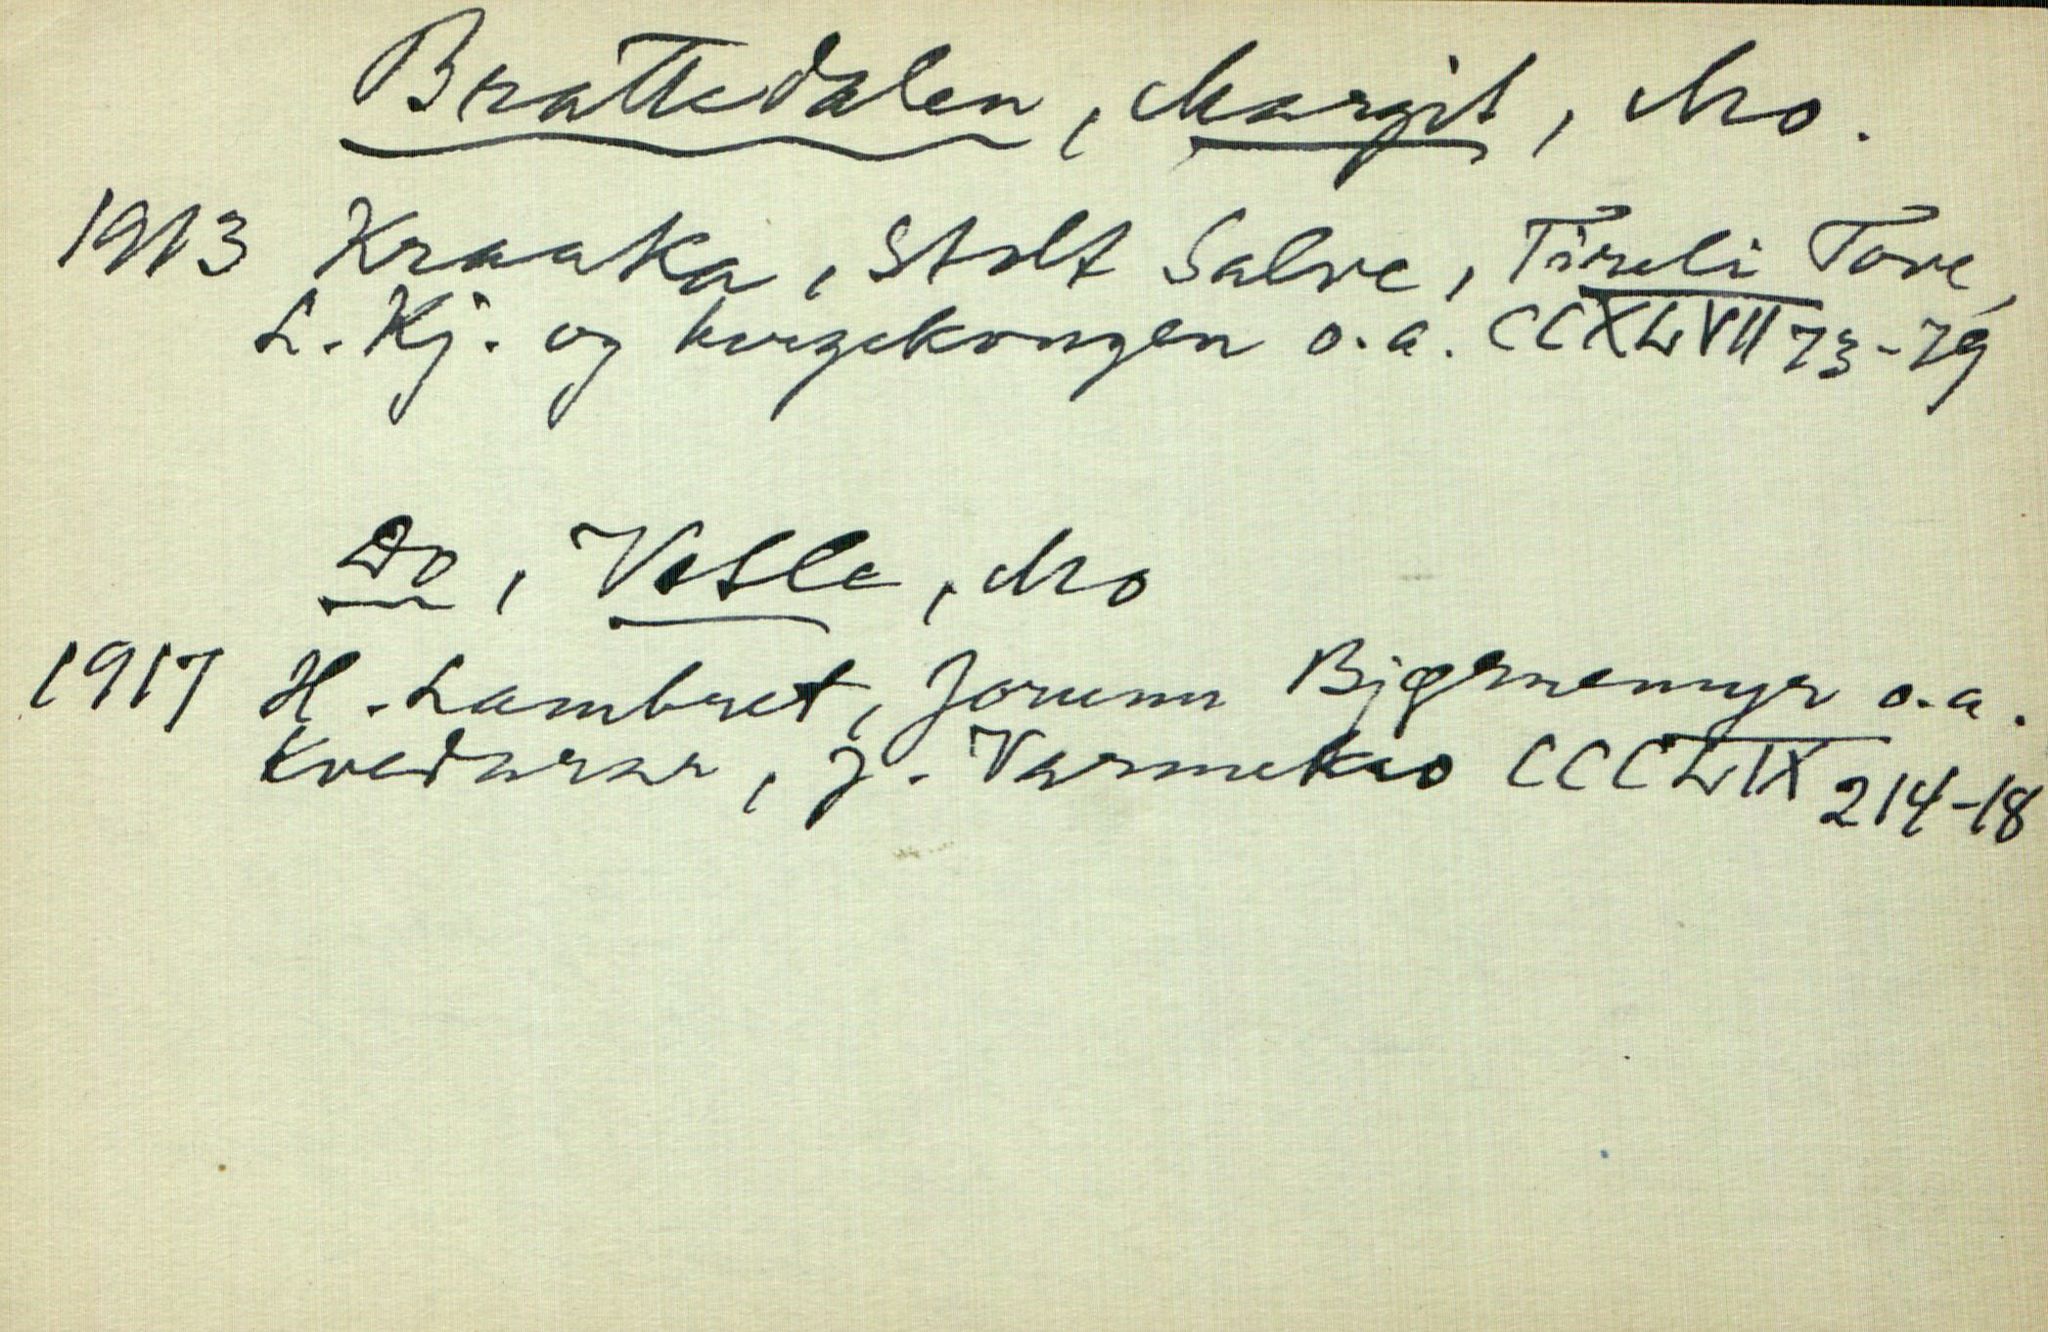 Brattedalen, Margit, Mo.
1913 Kraaka, Stolt Salve, Tireli Tove,
L. Kj. og bergekongen o.a. CCXLVII 73-79
Do, Vesle, Mo
1917 H. Lambret, Jorunn Bjørnemyr o.a.
Kvedarar, J. CCCLIX 214-18